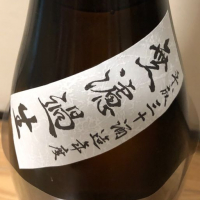 平成三十酒造年度
無濾過生